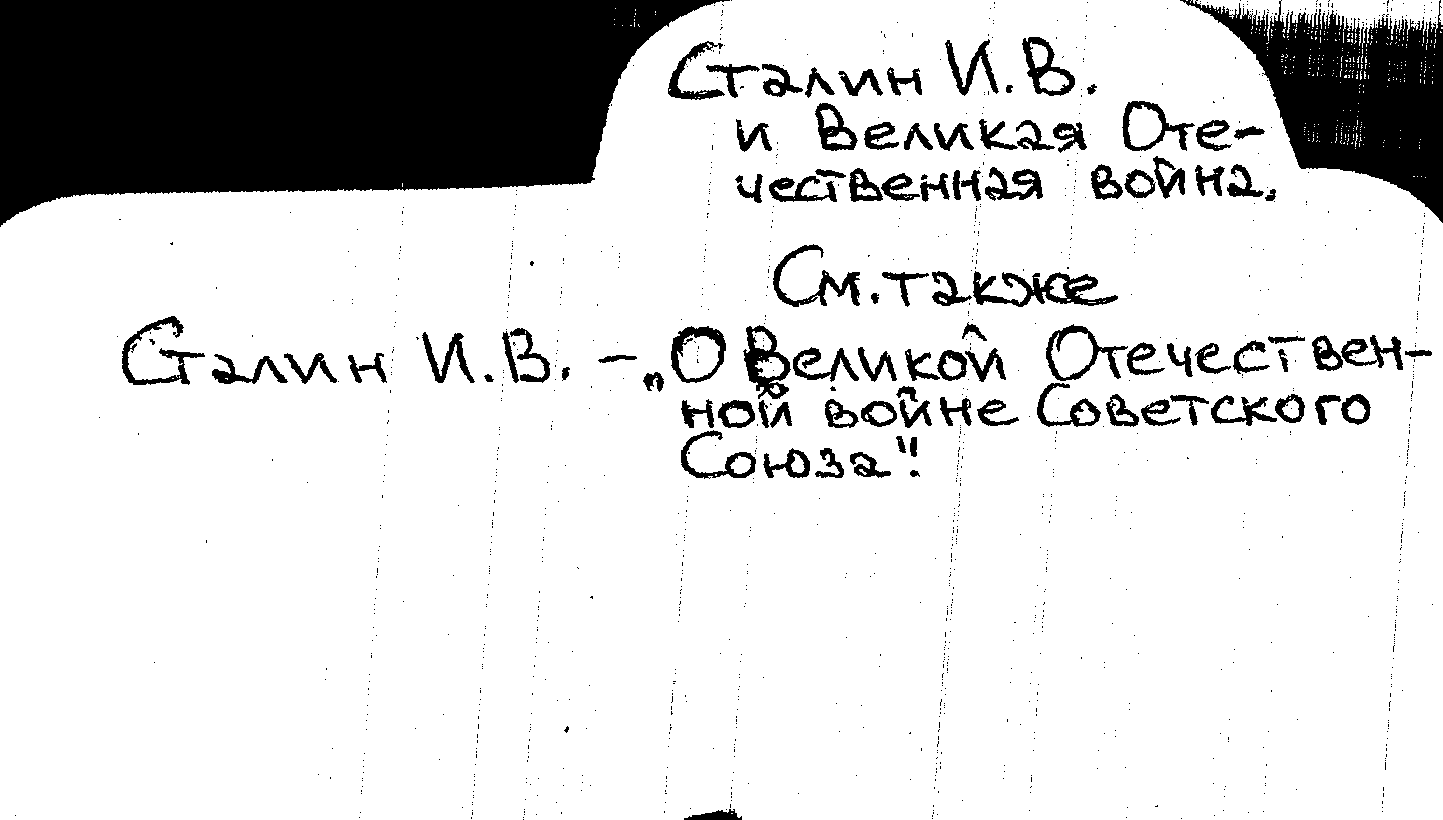 Сталин И.В.
и Великая Оте-
чественная война.
См. также
Сталин И.В. – „О Великой Отечествен-
ной войне Советского
Союза".